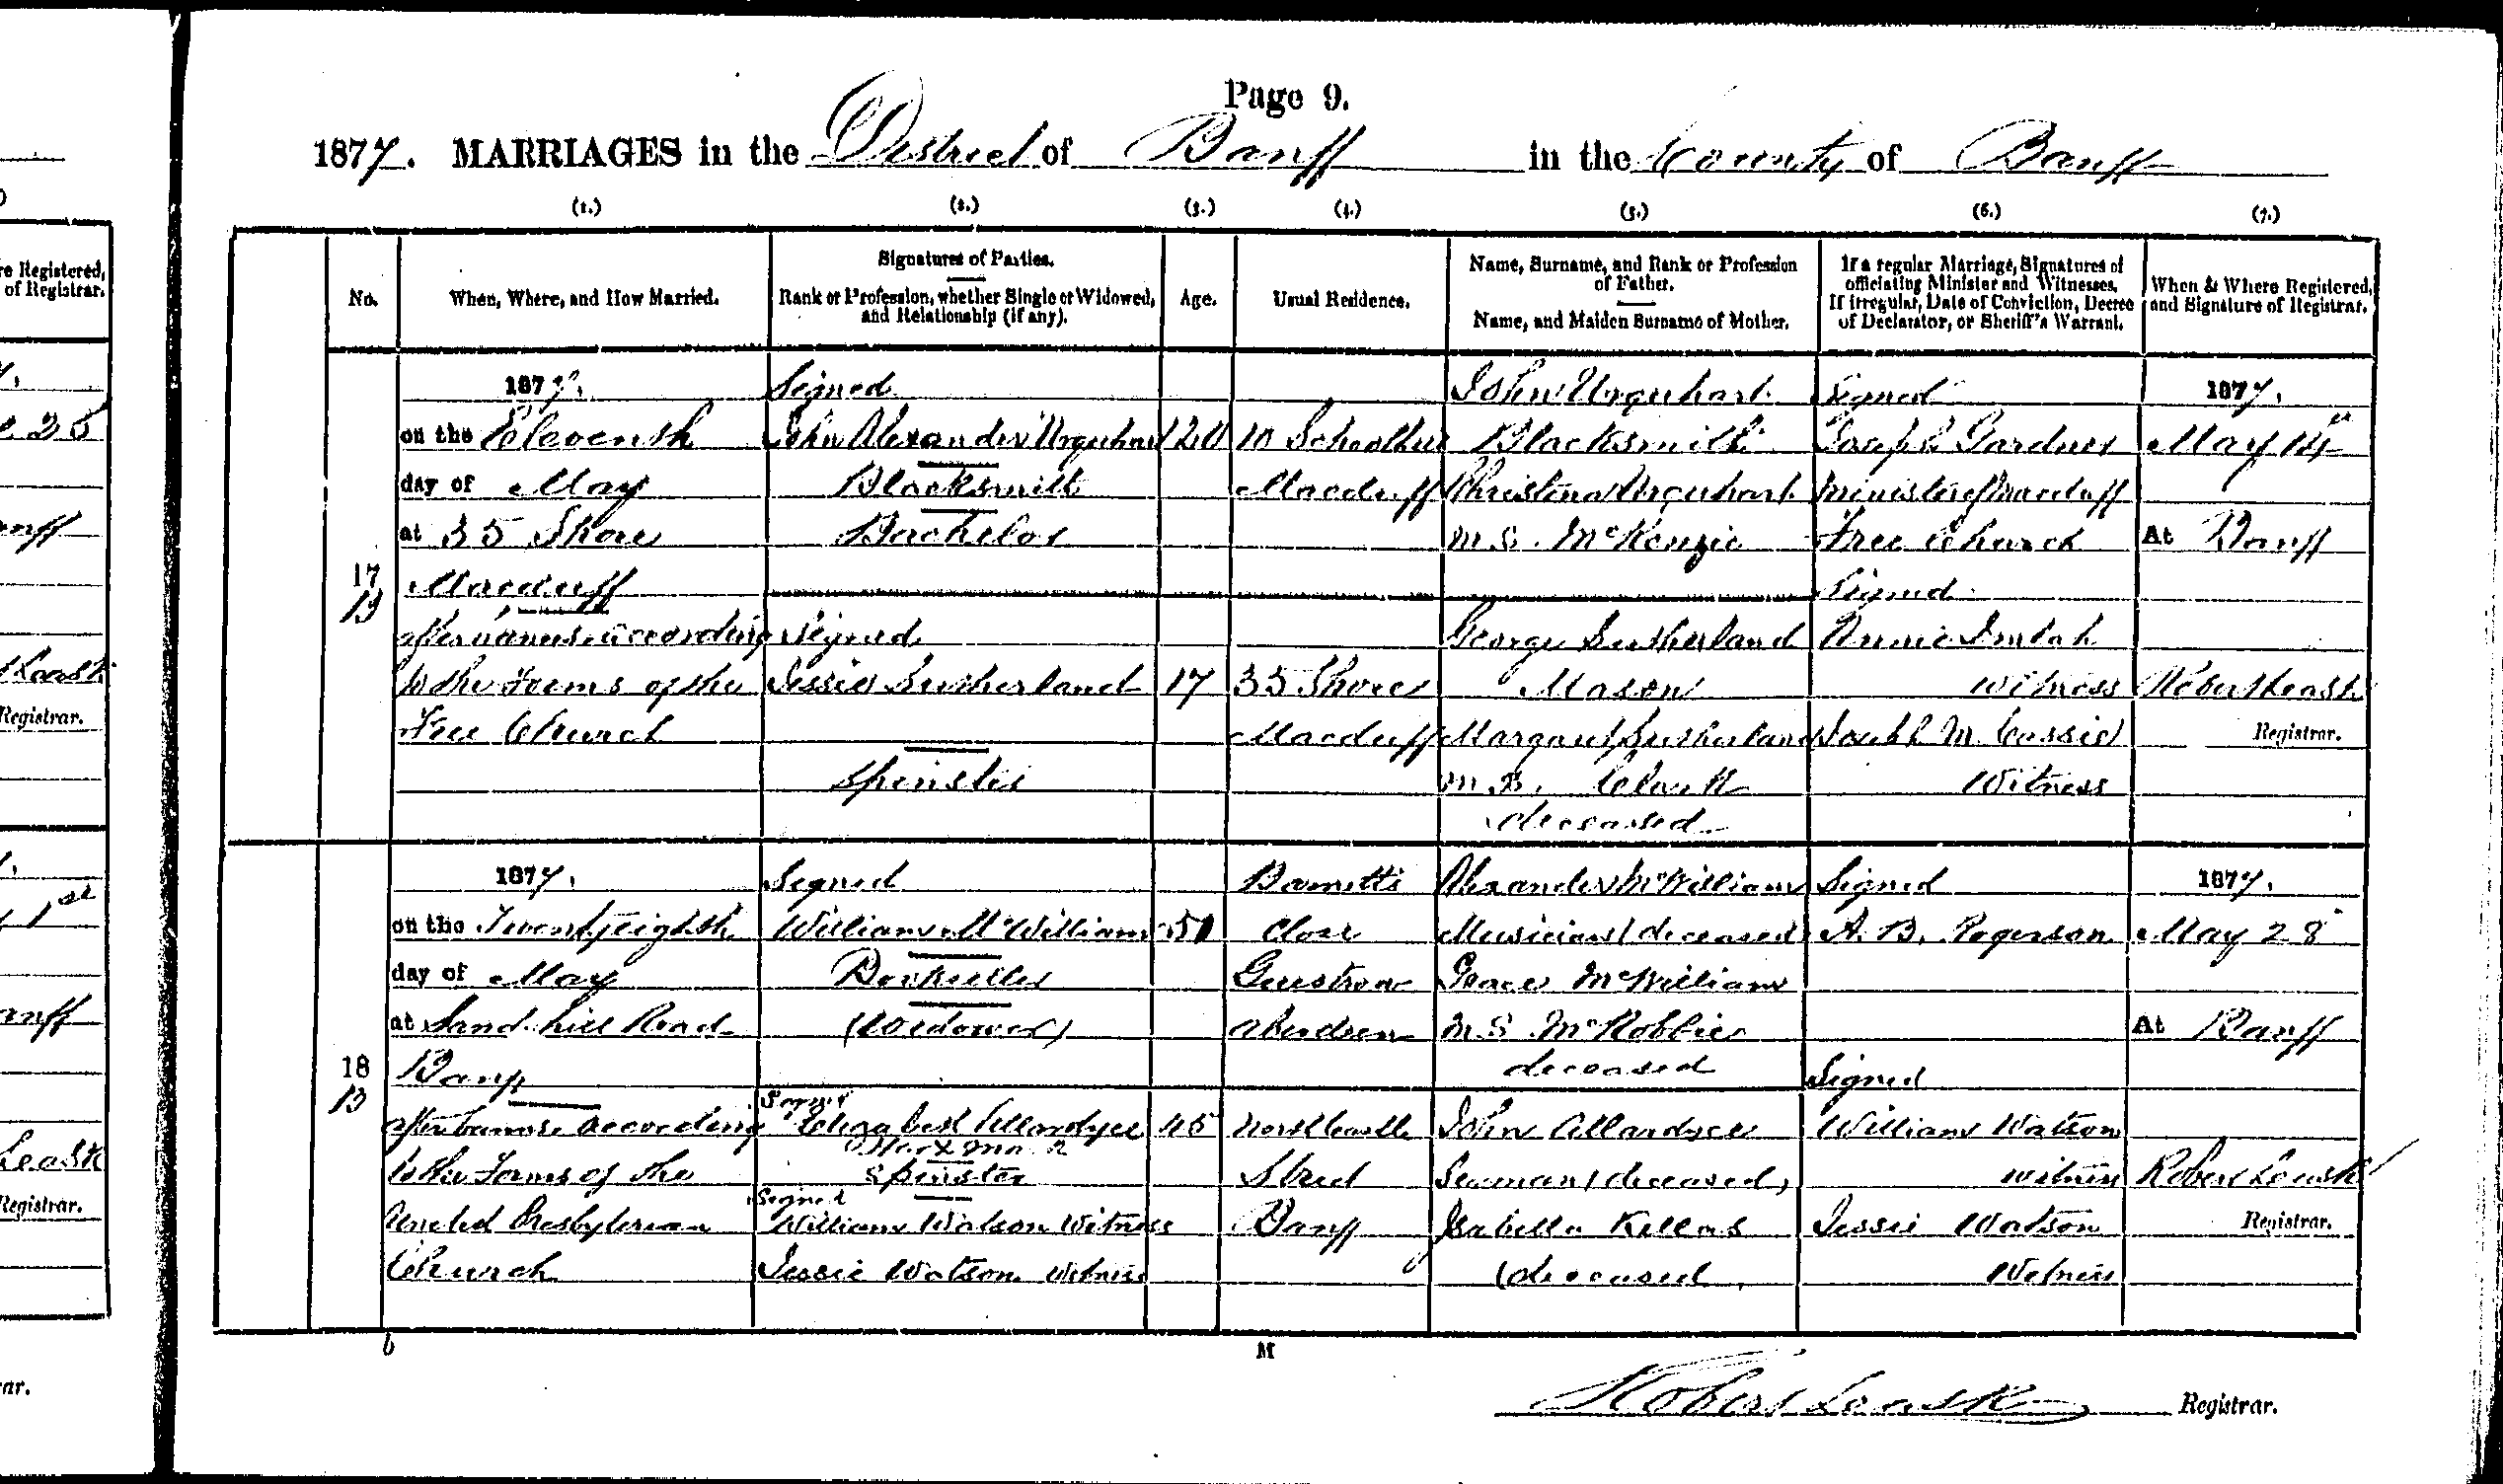 Page 9.
1877. MARRIAGES in the District of Banff in the County of Banff
(1.) (2.) (3.) (4.) (5.) (6.) (7.)
No.
When, Where, and How Married.
Signatures of Parties.
Rank or Profession, whether Single or Widowed,
and Relationship (if any).
Age.
Usual Residence.
Name, Surname, and Rank or Profession
of Father.
Name, and Maiden Surname of Mother.
If a regular Marriage, Signatures of
officiating Minister and Witnesses.
If irregular, Date of Conviction, Decree
of Declarator, or Sheriff's Warrant.
When & Where Registered,
and Signature of Registrar.
17
13
1877.
on the Eleventh
day of May
at 35 Shore
Macduff
after banns according
to the Forms of the
Free Church
Signed
John Alexander Urquhart
Blacksmith
Bachelor
Signed
Jessie Sutherland
Spinster
20
17
10 School
Macduff
35 Shore
Macduff
John Urquhart
Blacksmith
Christina Urquhart
M.S. McKenzie
George Sutherland
Mason
Margaret Sutherland
M.S. Clark
deceased
Signed
Joseph Gardner
Minister of Macduff
Free Church
Signed
Annie Imlah
witness
Joseph M. Cassie
Witness
1877.
May 14
At Banff
Robert Leask
Registrar.
18
13
1877.
on the Twenty eighth
day of May
at Sandhill Road
Banff
after banns according
to the Forms of the
United Presbyterian
Church
Signed
William McWilliam
(Widower)
Signed
Elizabeth Allardyce
Her X Mark
Spinster
Signed
William Watson Witness
Jessie Watson Witness
45
Close
Guestrow
Aberdeen
North Castle
Street
Banff
Alexander McWilliam
Musician (deceased)
Grace McWilliam
M.S. McRobbie
deceased
John Allardyce
Seaman (deceased)
Isabella Killas
(deceased)
Signed
A. B. Rogerson
Signed
William Watson
witness
Jessie Watson
Witness
1877.
May 28
At Banff
Robert Leask
Registrar.
M
Robert Leask Registrar.
e Registered,
of Registrar.
25
anff
Leask
Registrar.
1st
anff
Leask
Registrar.
ar.